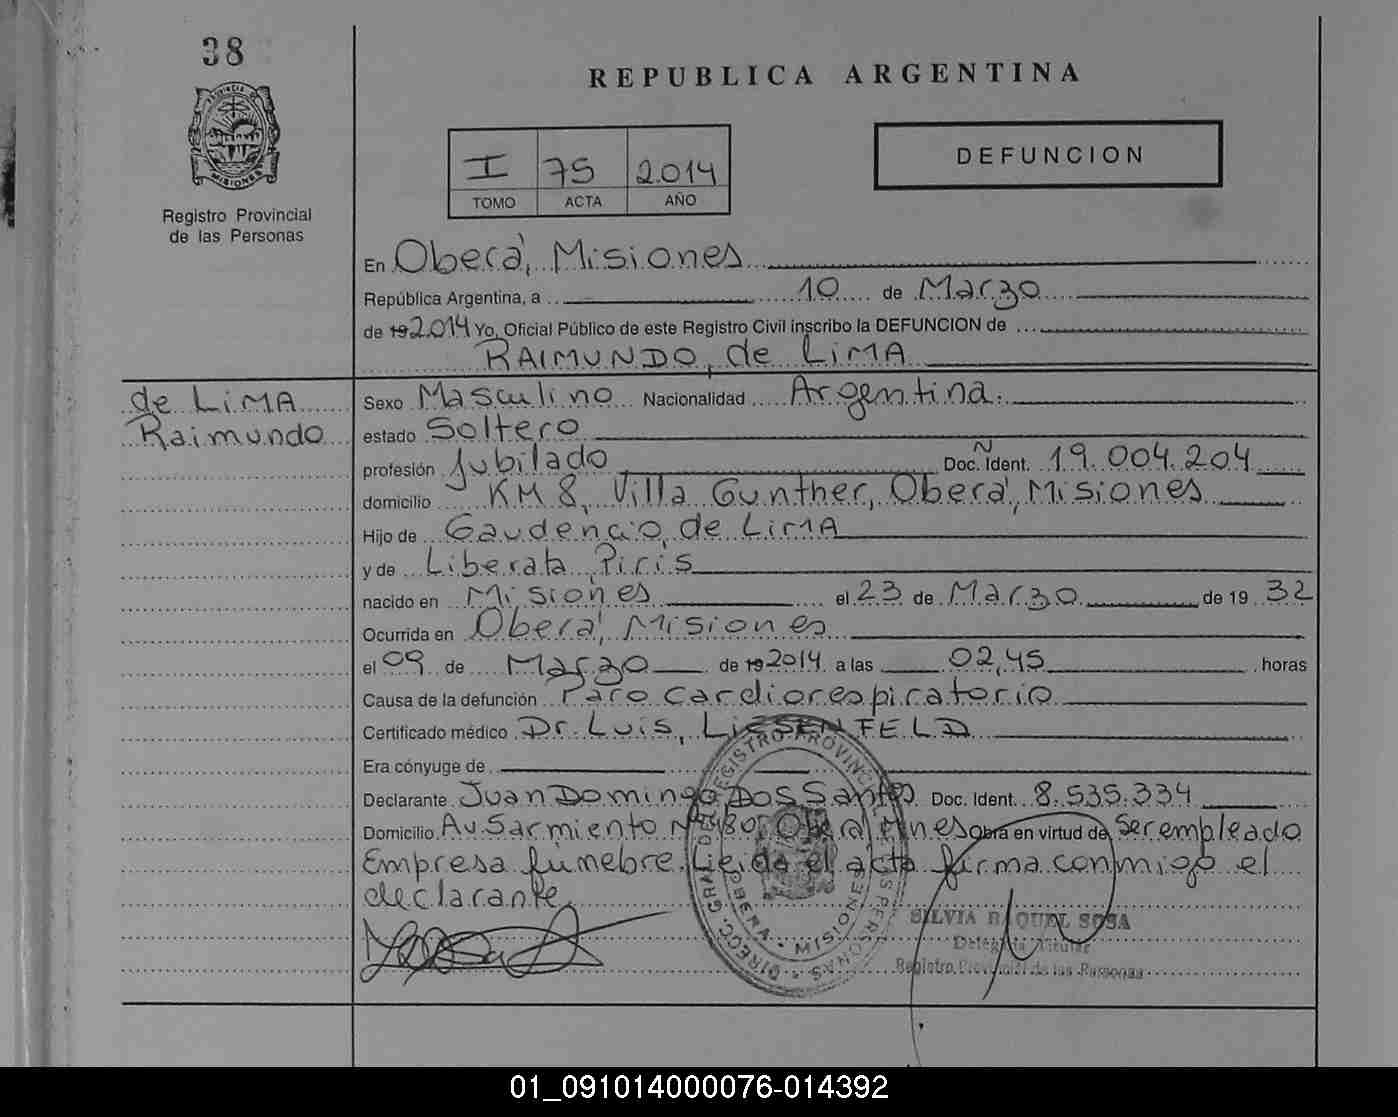 38
PROVINCIA DE
MISIONES
Registro Provincial
de las Personas
REPUBLICA ARGENTINA
I 75 2.014
TOMO ACTA AÑO
DEFUNCION
En Oberá, Misiones
República Argentina, a 10 de Marzo
de 19 2.014 Yo, Oficial Público de este Registro Civil inscribo la DEFUNCION de
RAIMUNDO, de LiMA
de LiMA
Raimundo
Sexo Masculino Nacionalidad Argentina.
estado Soltero
profesión Jubilado Doc. Ident. Nº 19.004.204
domicilio KM 8, Villa Gunther, Oberá, Misiones
Hijo de Gaudencio, de LiMA
y de Liberata, Piris
nacido en Misiones el 23 de Marzo de 19 32
Ocurrida en Oberá, Misiones
el 09 de Marzo de 19 2014 a las 02,45 horas
Causa de la defunción Paro cardiorespiratorio
Certificado médico Dr. Luis, LiESENFELD
Era cónyuge de
Declarante Juan Domingo Dos Santos Doc. Ident. 8.535.334
Domicilio Av. Sarmiento Nº 180, Oberá, Mnes Obra en virtud de Ser empleado
Empresa fúnebre. Leida el acta firma conmigo el
declarante.
DIREC. GRAL. DE REGISTRO PROVINCIAL DE LAS PERSONAS
OBERA - MISIONES
SILVIA RAQUEL SOSA
Delegada Titular
Registro Provincial de las Personas
01_091014000076-014392